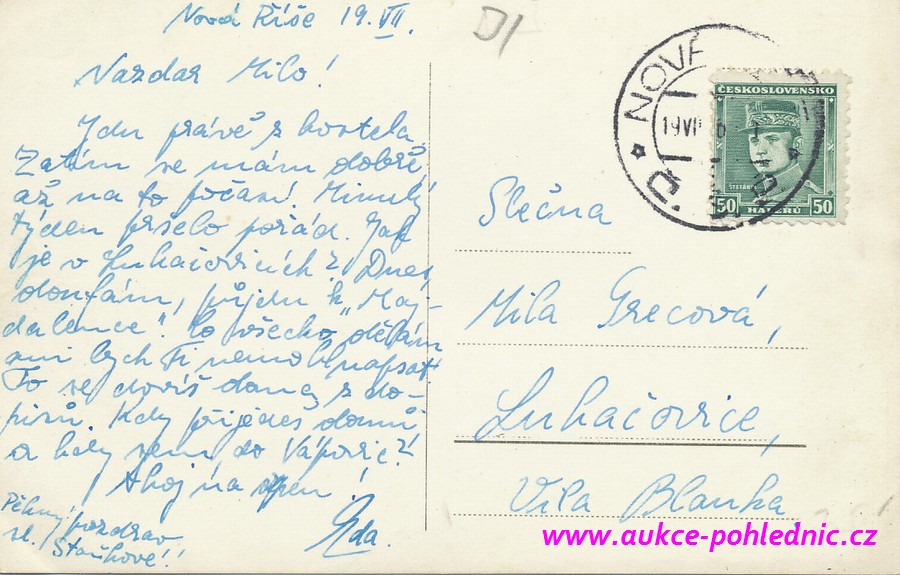 Nová Říše 19. VII.
Nazdar Milo!
Jdu právě z kostela.
Zatím se mám dobře
až na to počasí. Minulý
týden pršelo pořád. Jak
je v Luhačovicích? Dnes,
doufám, půjdu k "Maj-
dalence". Co všecko dělám
ani bych Ti nemohl napsat.
To se dovíš doma z do-
pisů. Kdy přijedeš domů
a kdy sem do Vápovic?
Ahoj na srpen!
Pěkný pozdrav
sl. Staňkové!!
D/
NOVÁ
19 VII
ČESKOSLOVENSKO
ŠTEFÁNIK
50 HALÉŘŮ 50
Slečna
Mila Grecová,
Luhačovice,
Vila Blanka
www.aukce-pohlednic.cz